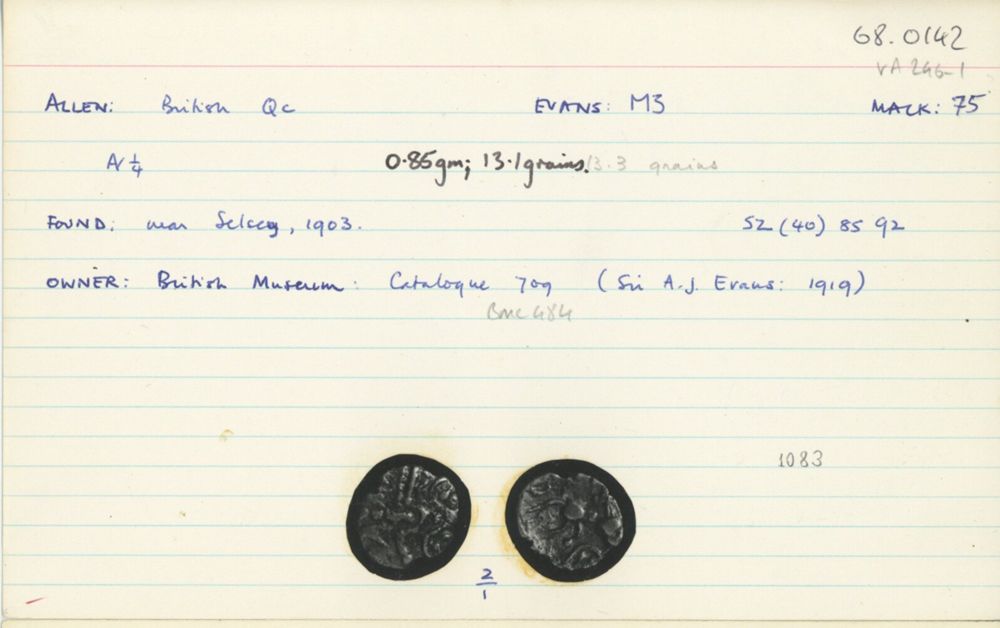 68.0142
VA 246-1
ALLEN: British Qc EVANS: M3 MACK: 75
A/ 1/4 0.85gm; 13.1grains. 13.3 grains
FOUND: near Selsey, 1903. SZ (40) 85 92
OWNER: British Museum: Catalogue 709 (Sir A.J. Evans: 1919)
BMC 484
1083
2/1